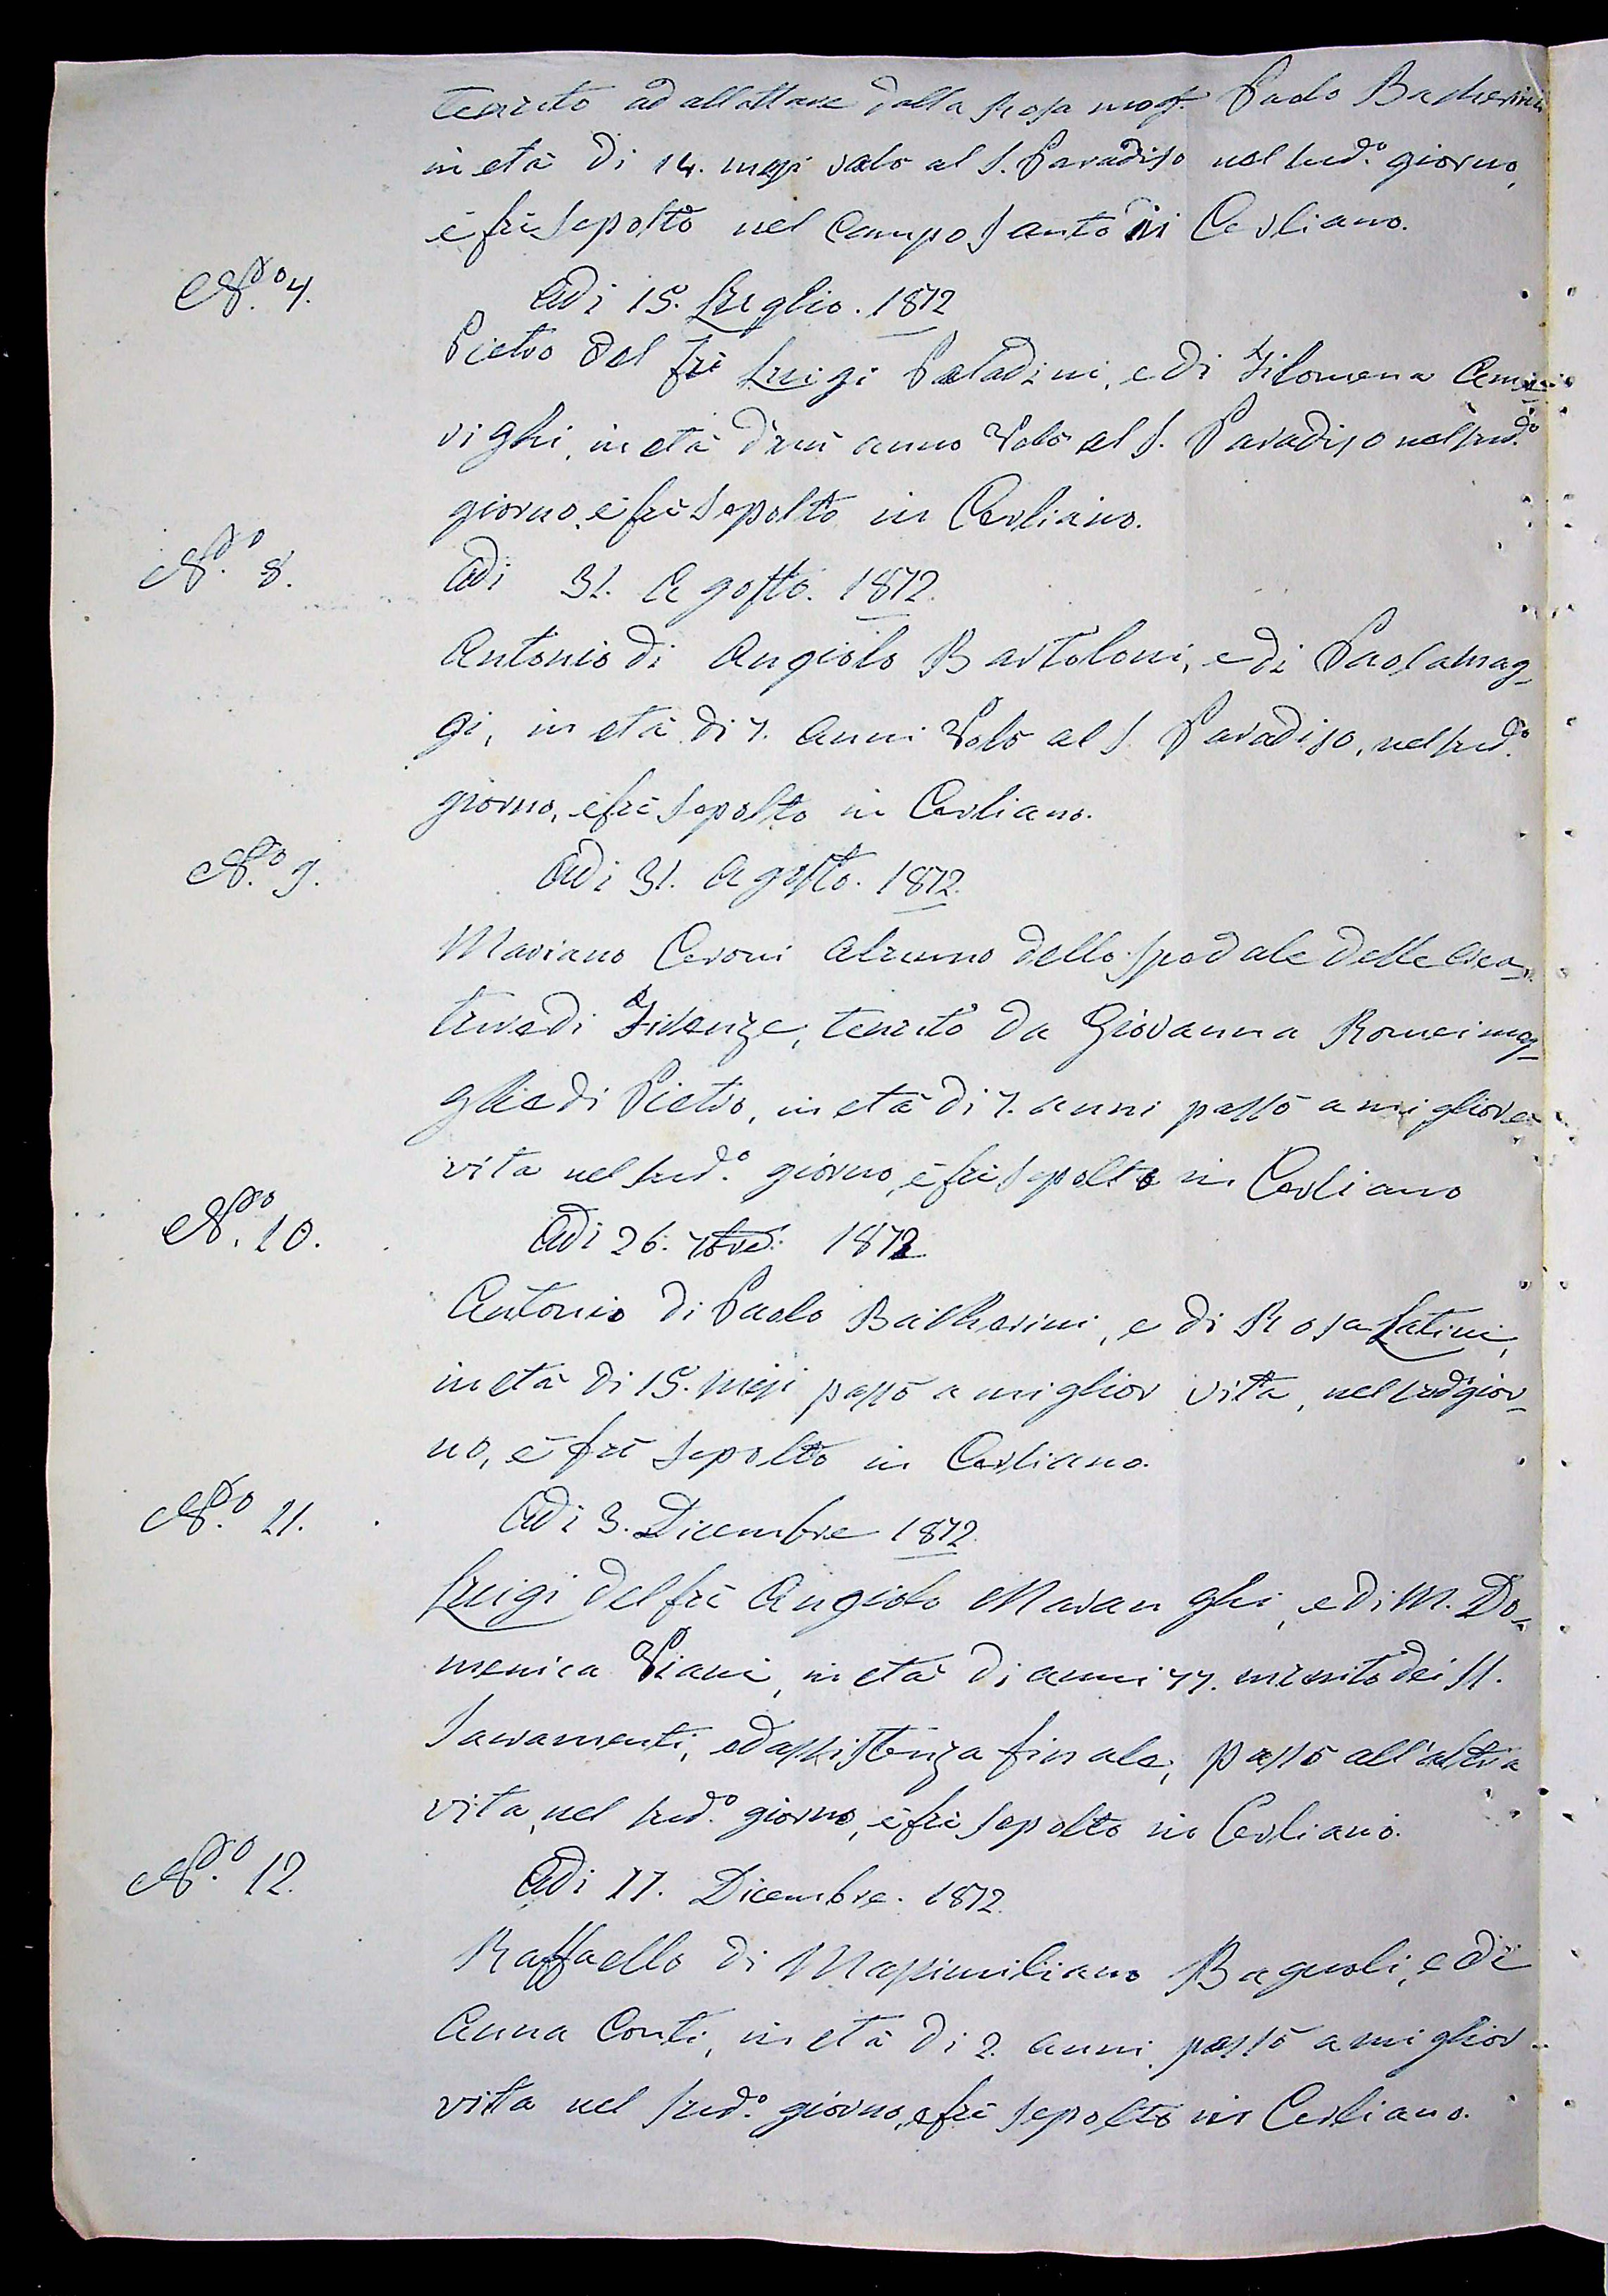 tenuto ad allattare dalla Rosa mog. Paolo Bacherini
in età di 14. mesi volò al S. Paradiso nel sud.º giorno,
e fù sepolto nel Campo Santo di Cerliano.
N.º 7. Adi 15. Luglio. 1872
Pietro del fù Luigi Paladini, e di Filomena
righi, in età d'un anno Volò al S. Paradiso nel sud.º
giorno, e fù sepolto in Cerliano.
N.º 8. Adi 31. Agosto. 1872.
Antonio di Angiolo Bartoloni, e di Paola Mag-
gi, in età di 7. Anni Volò al S. Paradiso, nel sud.º
giorno, e fù sepolto in Cerliano.
N.º 9. Adi 31. Agosto. 1872.
Mariano Ceroni Alunno dello Spedale delle Crea-
ture di Firenze, tenuto da Giovanna Romei mo-
glie di Pietro, in età di 7. anni passò a migliore
vita nel sud.º giorno, e fù sepolto in Cerliano
N.º 10. Adi 26. 7bre. 1872
Antonio di Paolo Bacherini, e di Rosa Latini,
in età di 15. mesi passò a miglior vita, nel sud.º gior-
no, e fù sepolto in Cerliano.
N.º 11. Adi 3. Dicembre 1872.
Luigi del fù Angiolo Maranghi, e di M. Do-
menica Viani, in età di anni 77. munito dei SS.
Sacramenti, ed assistenza finale, passò all'altra
vita, nel sud.º giorno, e fù sepolto in Cerliano.
N.º 12. Adi 11. Dicembre. 1872.
Raffaello di Massimiliano Bagnoli, e di
Anna Conti, in età di 2. anni, passò a miglior
vita nel sud.º giorno, e fù sepolto in Cerliano.